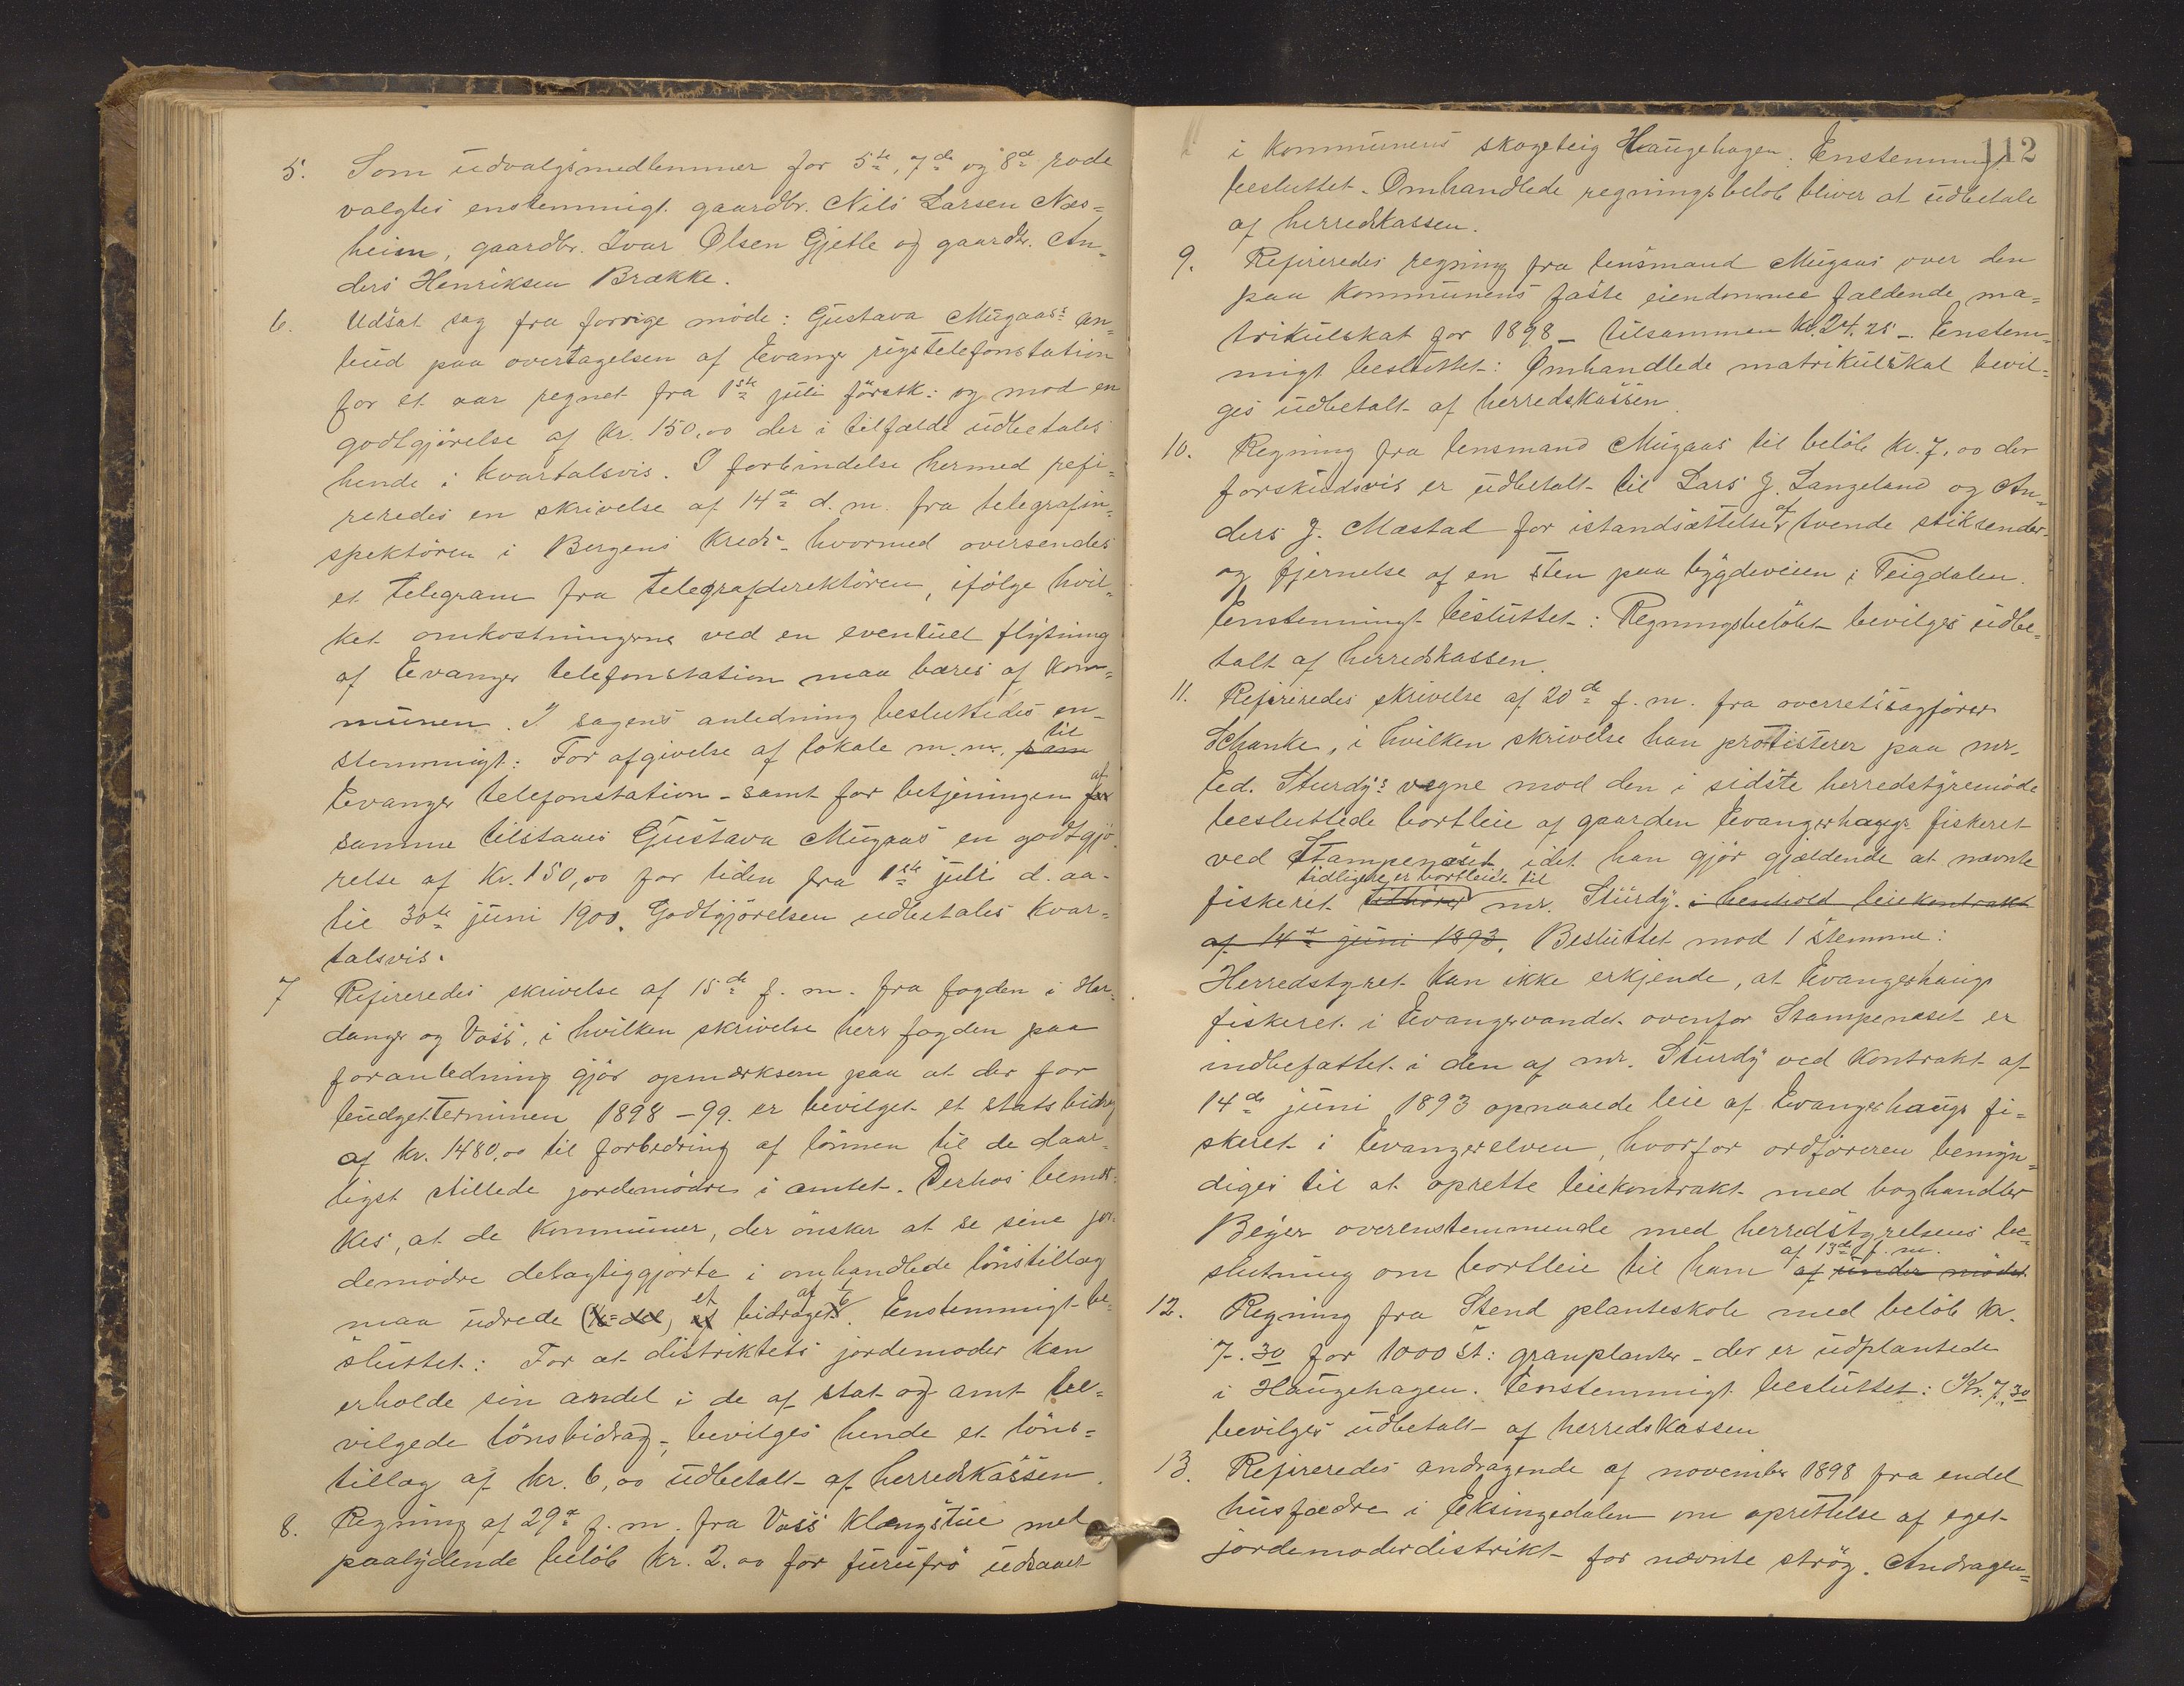 5. Som udvalgsmedlemmer for 5te, 7de og 8de rode
valgtes enstemmigt gaardbr. Nils Larsen Næs=
heim, gaardbr. Ivar Olsen Gjetle og gaardbr. An=
ders Henriksen Brække.
6. Udsat sag fra forrige møde: Gustava Mügaas's an=
bud paa overtagelsen af Evanger rigstelefonstation
for et aar regnet fra 1ste juli förstk: og mod en
godtgjörelse af kr. 150,00 der i tilfælde udbetales
hende i kvartalsvis. I forbindelse hermed refe=
reredes en skrivelse af 14de d. m. fra telegrafin=
spektören i Bergens kreds - hvormed oversendes
et telegram fra telegrafdirektören, ifölge hvil=
ket omkostningerne ved en eventuel flytning
af Evanger telefonstation maa bæres af kom=
munen. I sagens anledning besluttedes en=
stemmigt: For afgivelse af lokale m. m. til
Evanger telefonstation - samt for betjeningen af
samme tilstaaes Gustava Mügaas en godtgjö=
relse af Kr. 150,00 for tiden fra 1ste juli d. aa.
til 30te juni 1900. Godtgjörelsen udbetales kvar=
talsvis.
7 Refereredes skrivelse af 15de f. m. fra fogden i Har=
danger og Voss, i hvilken skrivelse herr fogden paa
foranledning gjör opmærksom paa at der for
budgetterminen 1898-99. er bevilget et statsbidrag
af kr. 1480,00 til forbedring af lönnen til de daar=
ligst stillede jordemödre i amtet. Derhos bemær=
kes, at de kommuner, der önsker at se sine jor=
demödre delagtiggjorte i omhandlede lönstillæg
maa udrede et bidrag af 1/6. Enstemmigt be=
sluttet: For at distriktets jordemoder kan
erholde sin andel i de af stat og amt be=
vilgede lönsbidrag, bevilges hende et löns=
tillæg af kr. 6,00 udbetalt af herredskassen.
8. Regning af 29de f. m. fra Voss Klængstue med
paalydende belöb kr. 2.00 for furufrö udsaaet
112
i kommunens skogteig Haugehagen. Enstemmigt
besluttet. Omhandlede regningsbelöb bliver at udbetale
af herredskassen.
9. Refereredes regning fra lensmand Mügaas over den
paa kommunens faste eiendomme faldende ma=
trikulskat for 1898 - tilsammen kr. 24.25 -. Enstem=
migt besluttet: Omhandlede matrikulskat bevil=
ges udbetalt af herredskassen.
10. Regning fra lensmand Mügaas til belöb kr. 7,00 der
forskudsvis er udbetalt til Lars J. Langeland og An=
ders J. Mæstad for istandsættelse af tvende stikrender
og fjernelse af en sten paa bygdeveien i Teigdalen.
Enstemmigt besluttet: Regningsbelöbet bevilges udbe=
talt af herredskassen.
11. Refereredes skrivelse af 20de f. m. fra overretssagförer
Schanke, i hvilken skrivelse han protisterer paa mr.
Ed. Sturdy's vegne mod den i sidste herredstyremöde
besluttede bortleie af gaarden Evangerhaugs fiskeret
ved Stampenæset, idet han gjör gjældende at nævnte
fiskeret tidligere er bortleiet til mr. Stürdy. i henhold leiekontrakt
af 14de juni 1893. Besluttet mod 1 stemme:
Herredstyret kan ikke erkjende, at Evangerhaugs
fiskeret i Evangervandet ovenfor Stampenæset er
indbefattet i den af mr. Sturdy ved kontrakt af
14de juni 1893 opnaaede leie af Evangerhaugs fi=
skeret i Evangerelven, hvorfor ordföreren bemyn=
diges til at oprette leiekontrakt med boghandler
Beyer overenstemmende med herredstyrelsens be=
slutning om bortleie til ham af 13de f. m.
12. Regning fra Stend planteskole med belöb kr.
7.30 for 1000 st: granplanter - der er udplantede
i Haugehagen. Enstemmigt besluttet: Kr. 7.30
bevilges udbetalt af herredskassen
13. Refereredes andragende af november 1898 fra endel
husfædre i Eksingedalen om oprettelse af eget
jordemoderdistrikt for nævnte strög. Andragen=